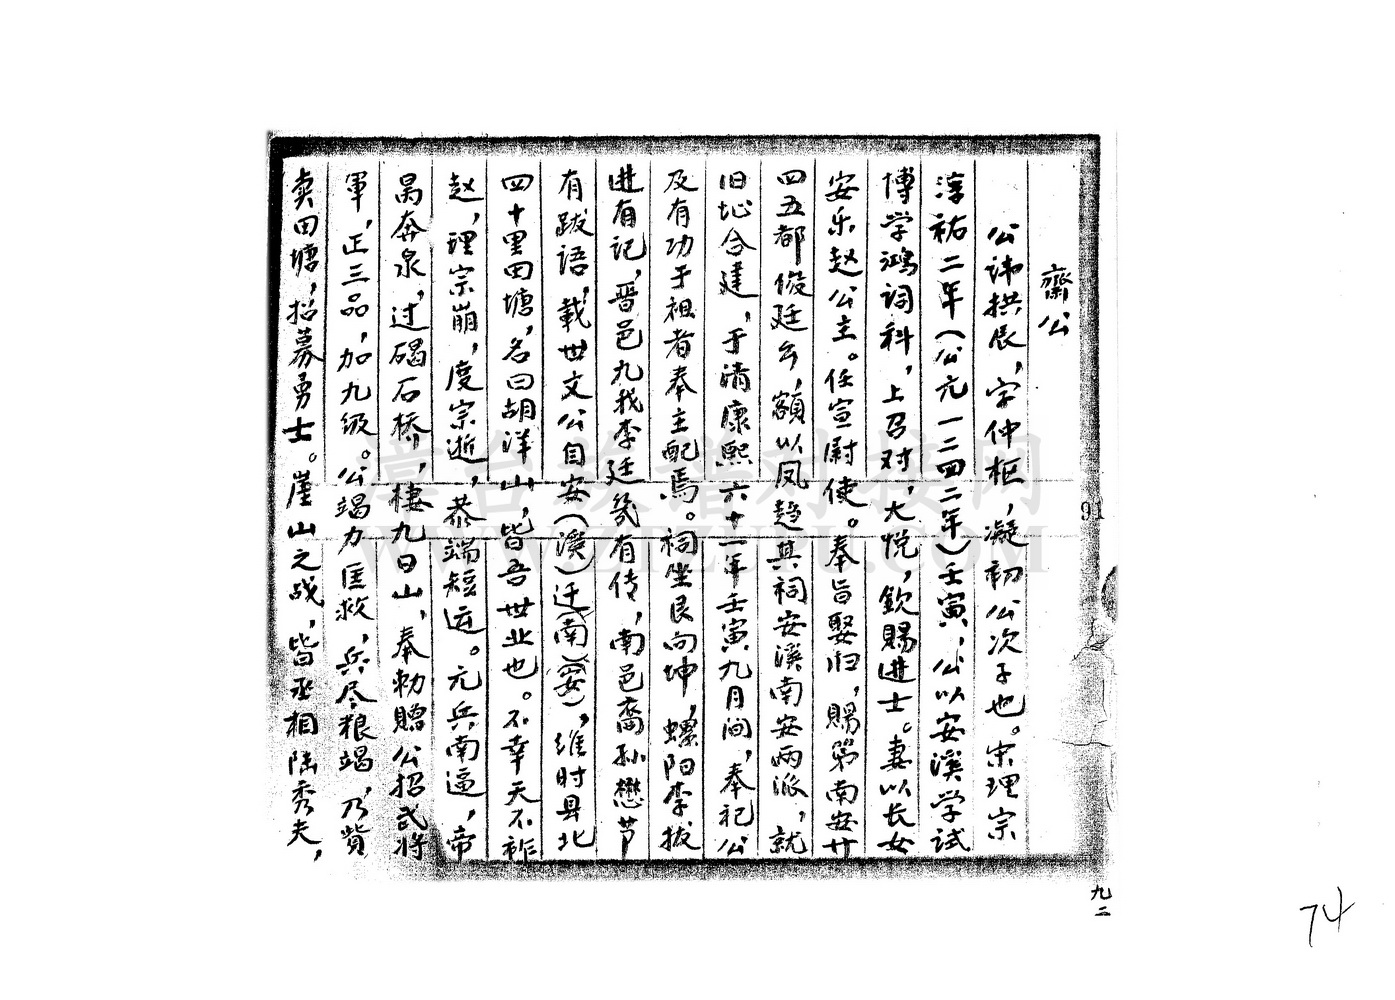 齋公
公讳拱辰，字仲枢，凝初公次子也。宋理宗
淳祐二年（公元一二四二年）壬寅，公以安溪学试
博学鸿词科，上召对，大悦，钦赐进士。妻以长女
安乐赵公主。任宣尉使。奉旨娶归，赐第南安廿
四五都俊廷乡，额以凤趋其祠安溪南安两派，就
旧址合建，于清康熙六十一年壬寅九月间，奉祀公
及有功于祖者奉主配焉。祠坐艮向坤，螺阳李拔
进有记，晋邑九我李廷机有传，南邑裔孙懋芦
有跋语，载世文公自安（溪）迁南（安），维时县北
四十里田塘，名曰胡洋山，皆吾世业也。不幸天不祚
赵，理宗崩，度宗逝，恭端短运。元兵南逼，帝
昺奔泉，过碣石桥，棲九日山，奉勅赠公招武将
軍，正三品，加九级。公竭力匡救，兵尽粮竭，乃赀
卖田塘，招募勇士。崖山之战，皆丞相陆秀夫，
91
九二
74
漳台族谱对接网
WWW.ZTZUPU.COM